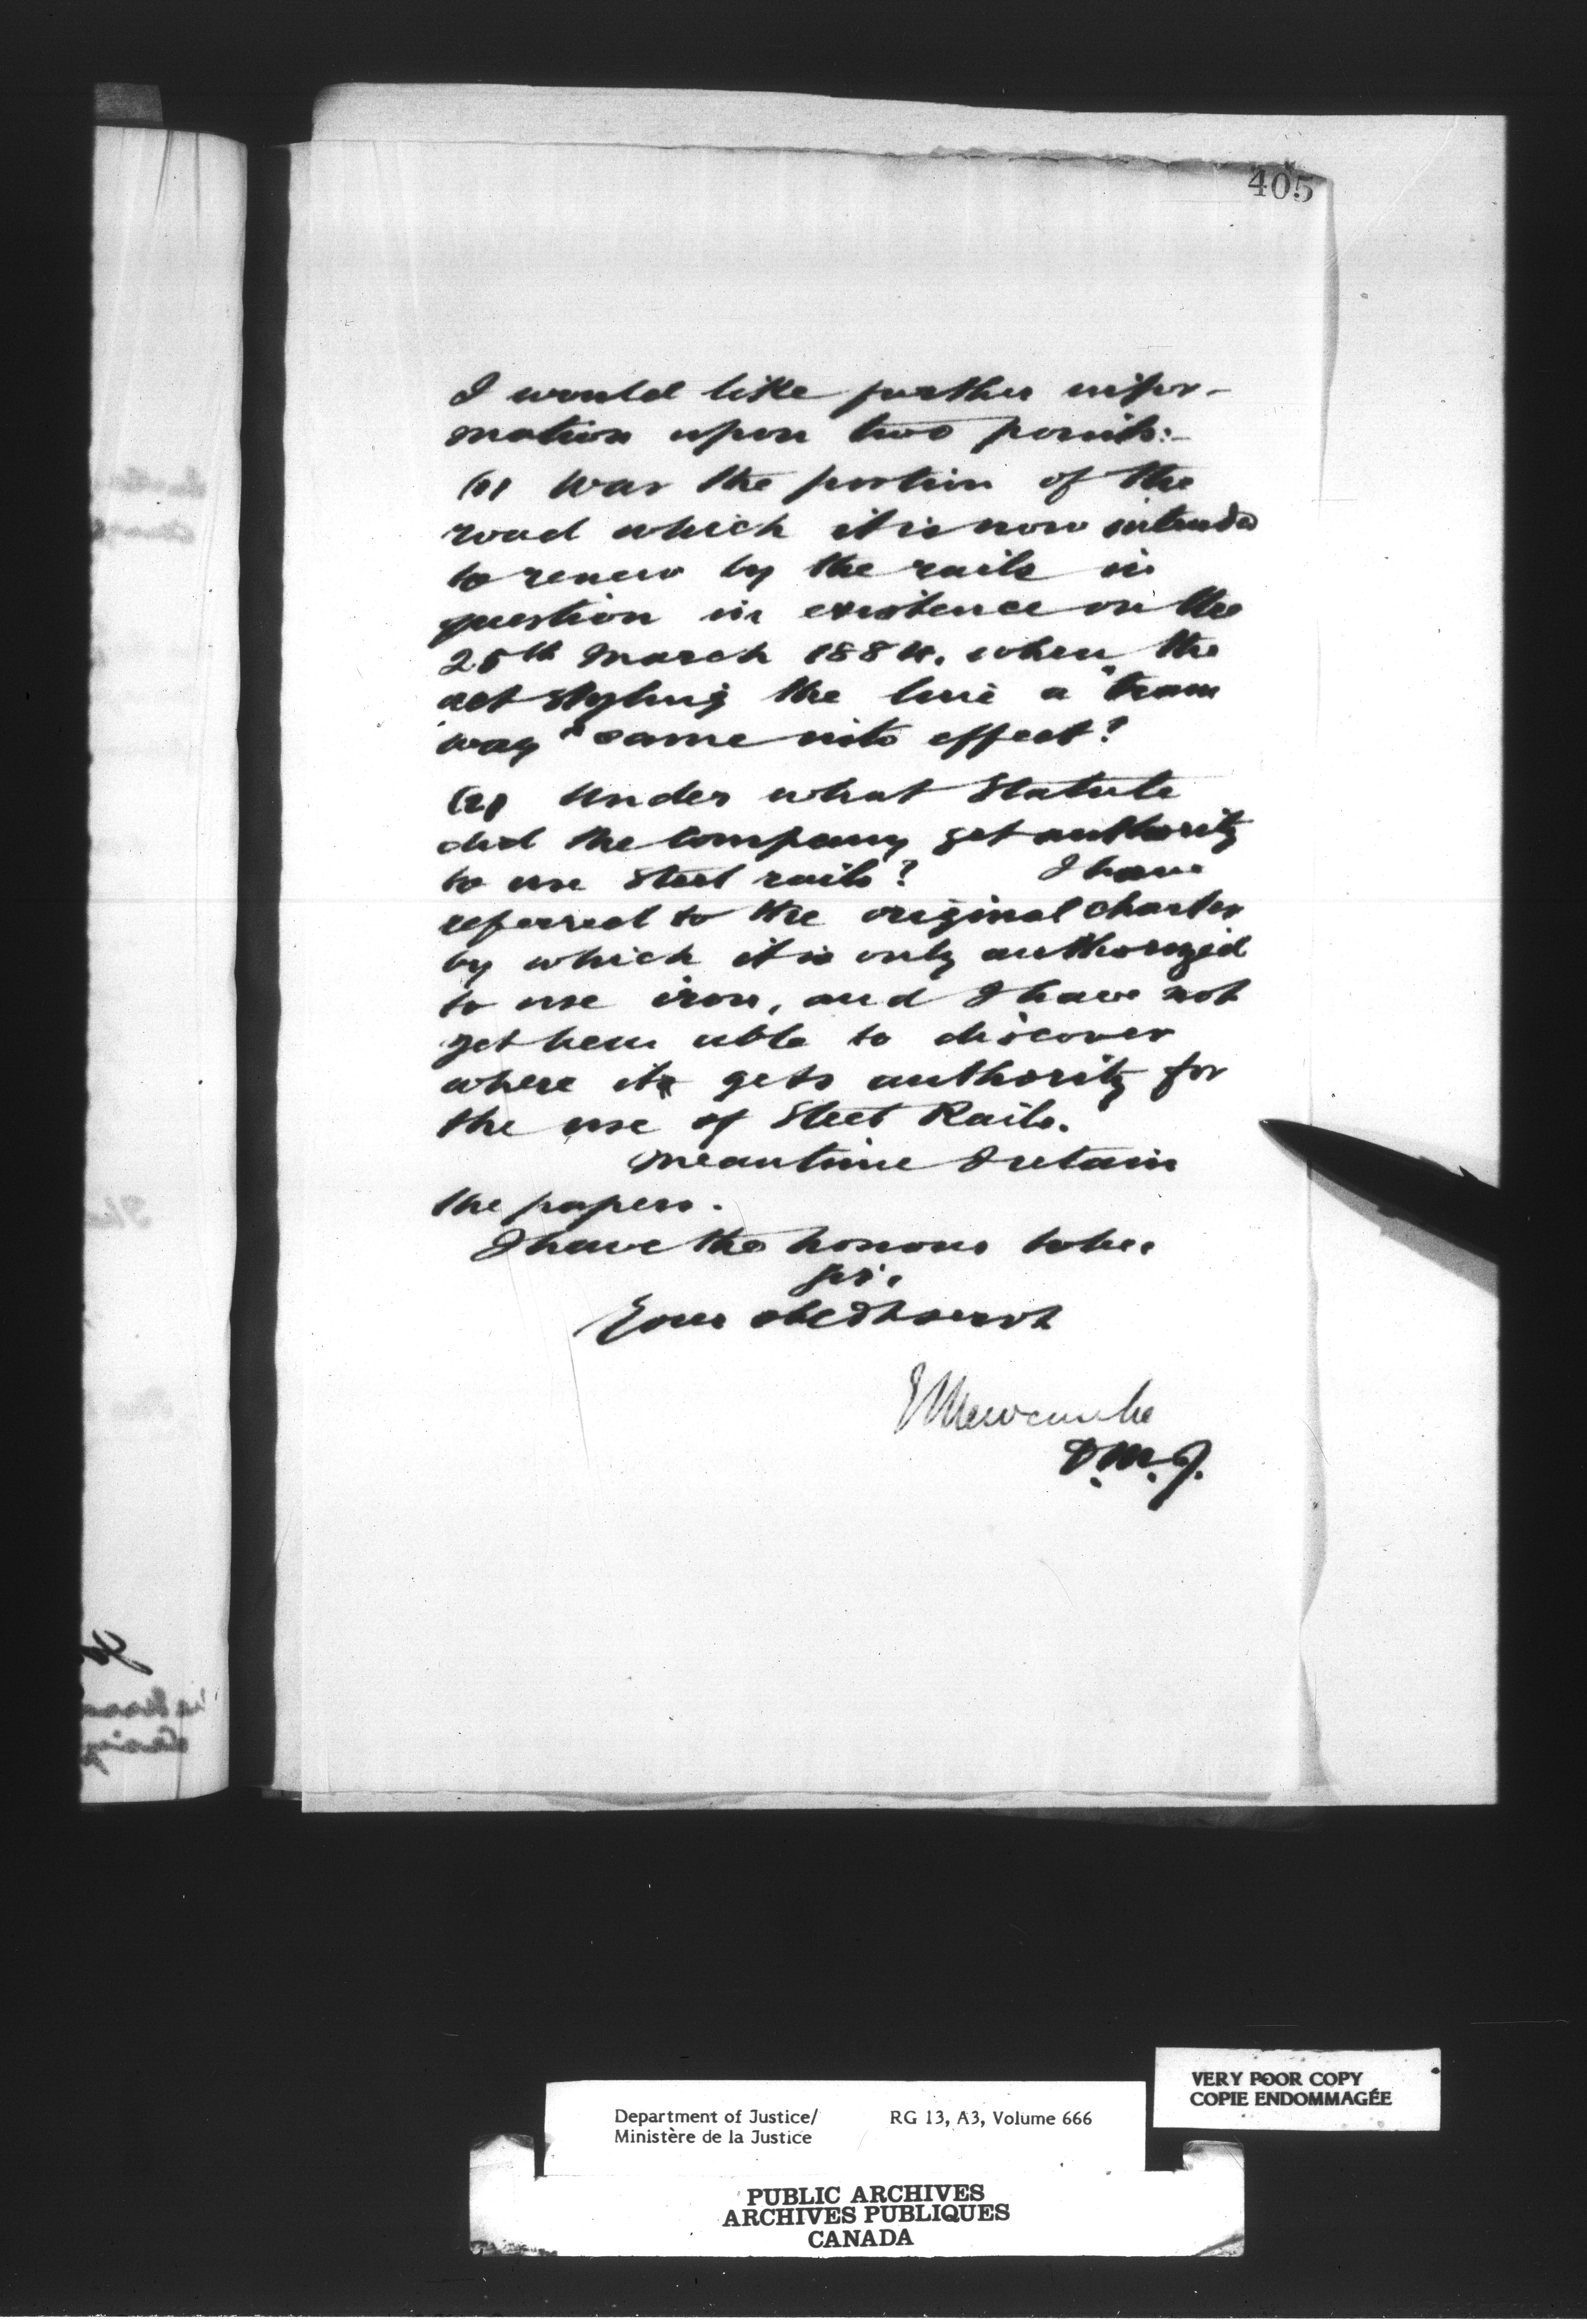 405
I would like further infor-
mation upon two points:-
(1) Was the portion of the
road which it is now intended
to renew by the rails in
question in existence on the
25th March 1884. when the
act styling the line a "tram
way" came into effect?
(2) Under what Statute
did the Company get authority
to use steel rails? I have
referred to the original charter
by which it is only authorized
to use iron, and I have not
yet been able to discover
where it gets authority for
the use of Steel Rails.
Meantime I retain
the papers.
I have the honour to be,
Sir,
Your obedt servt
E Newcombe
D.M.J.
VERY POOR COPY
COPIE ENDOMMAGÉE
Department of Justice/ RG 13, A3, Volume 666
Ministère de la Justice
PUBLIC ARCHIVES
ARCHIVES PUBLIQUES
CANADA